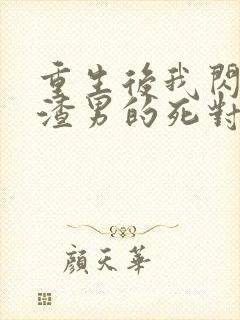 重生後我閃
渣男的死對
顏天華